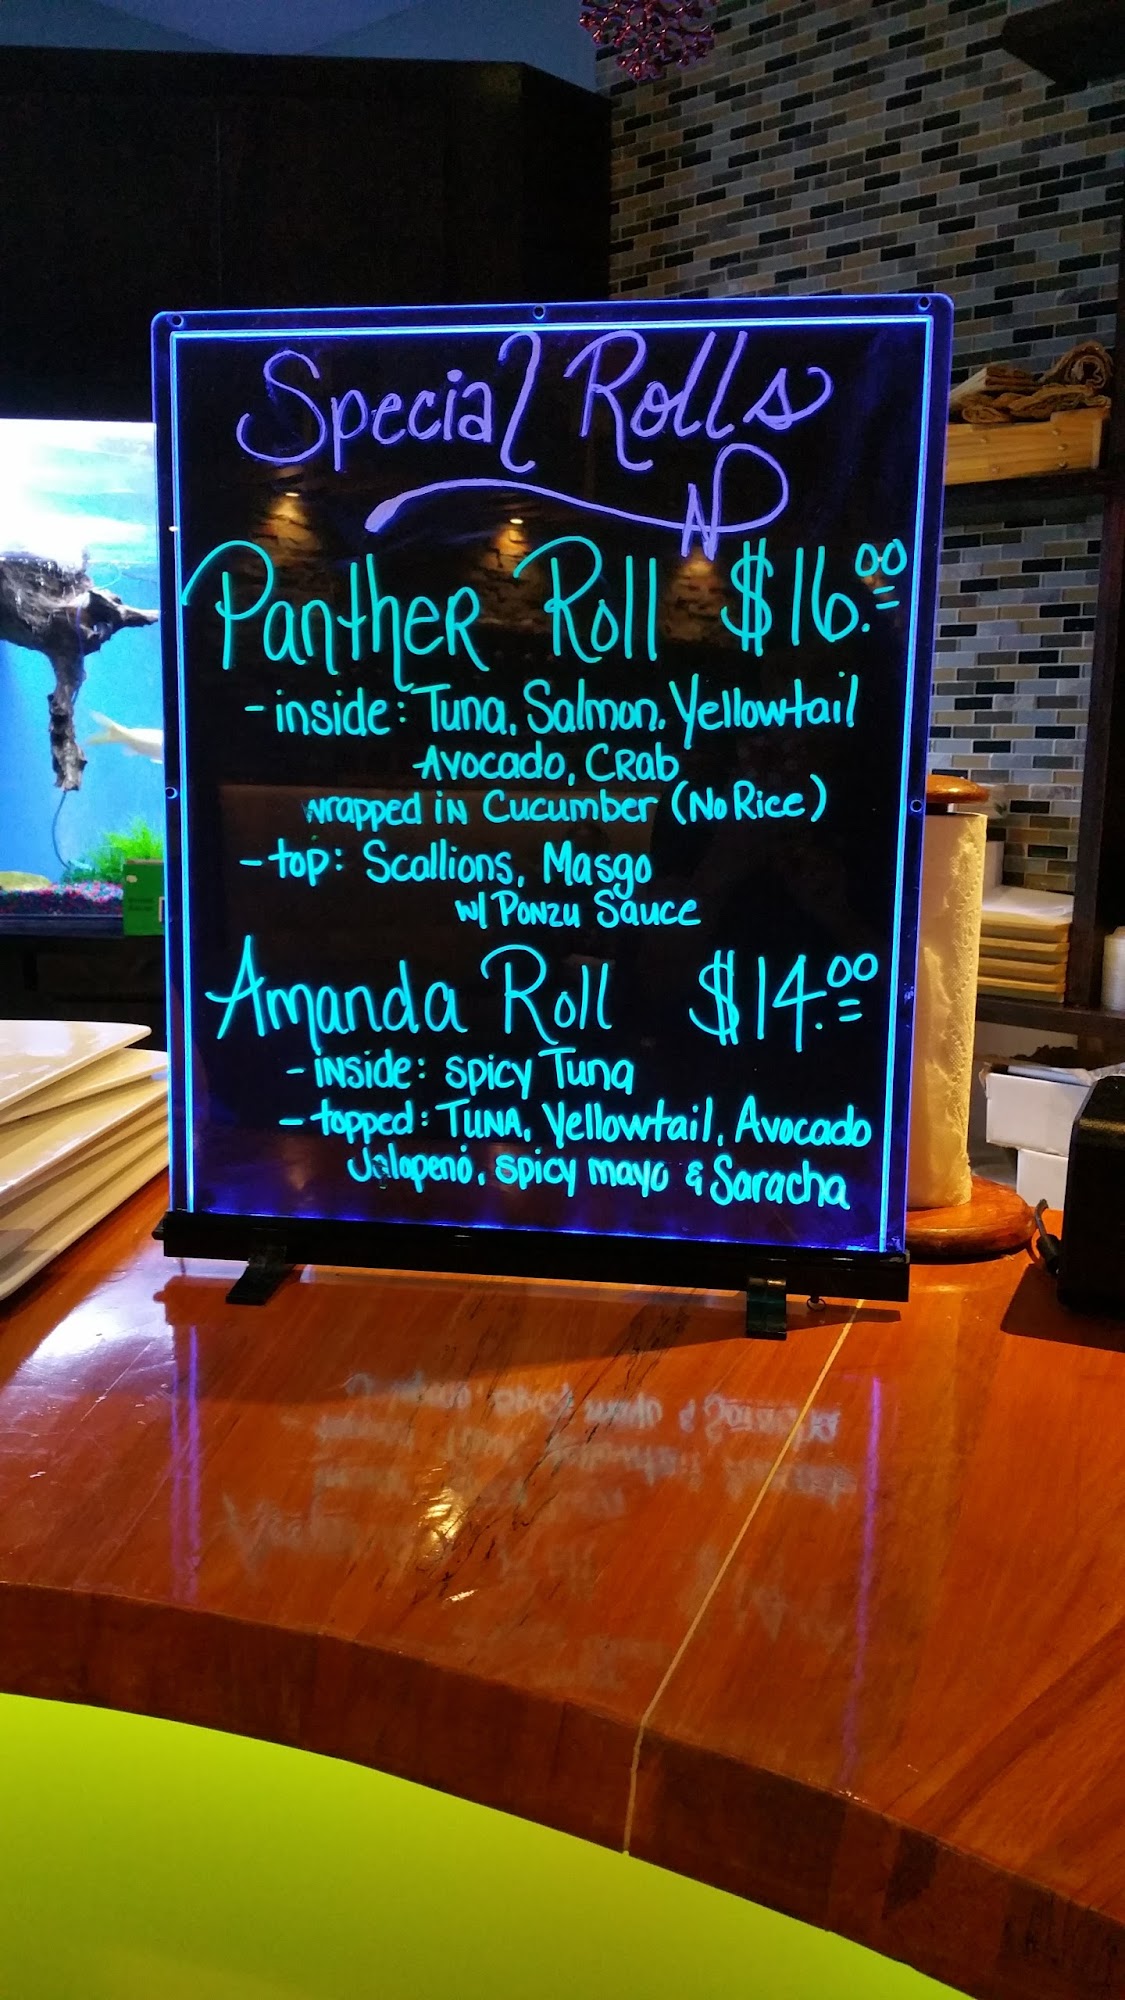 Special Rolls
Panther Roll $16.00
- inside: Tuna, Salmon, Yellowtail
Avocado, Crab
wrapped in Cucumber (No Rice)
- top: Scallions, Masgo
w/ Ponzu Sauce
Amanda Roll $14.00
- inside: spicy Tuna
- topped: Tuna, Yellowtail, Avocado
Jalapeno, spicy mayo & Saracha